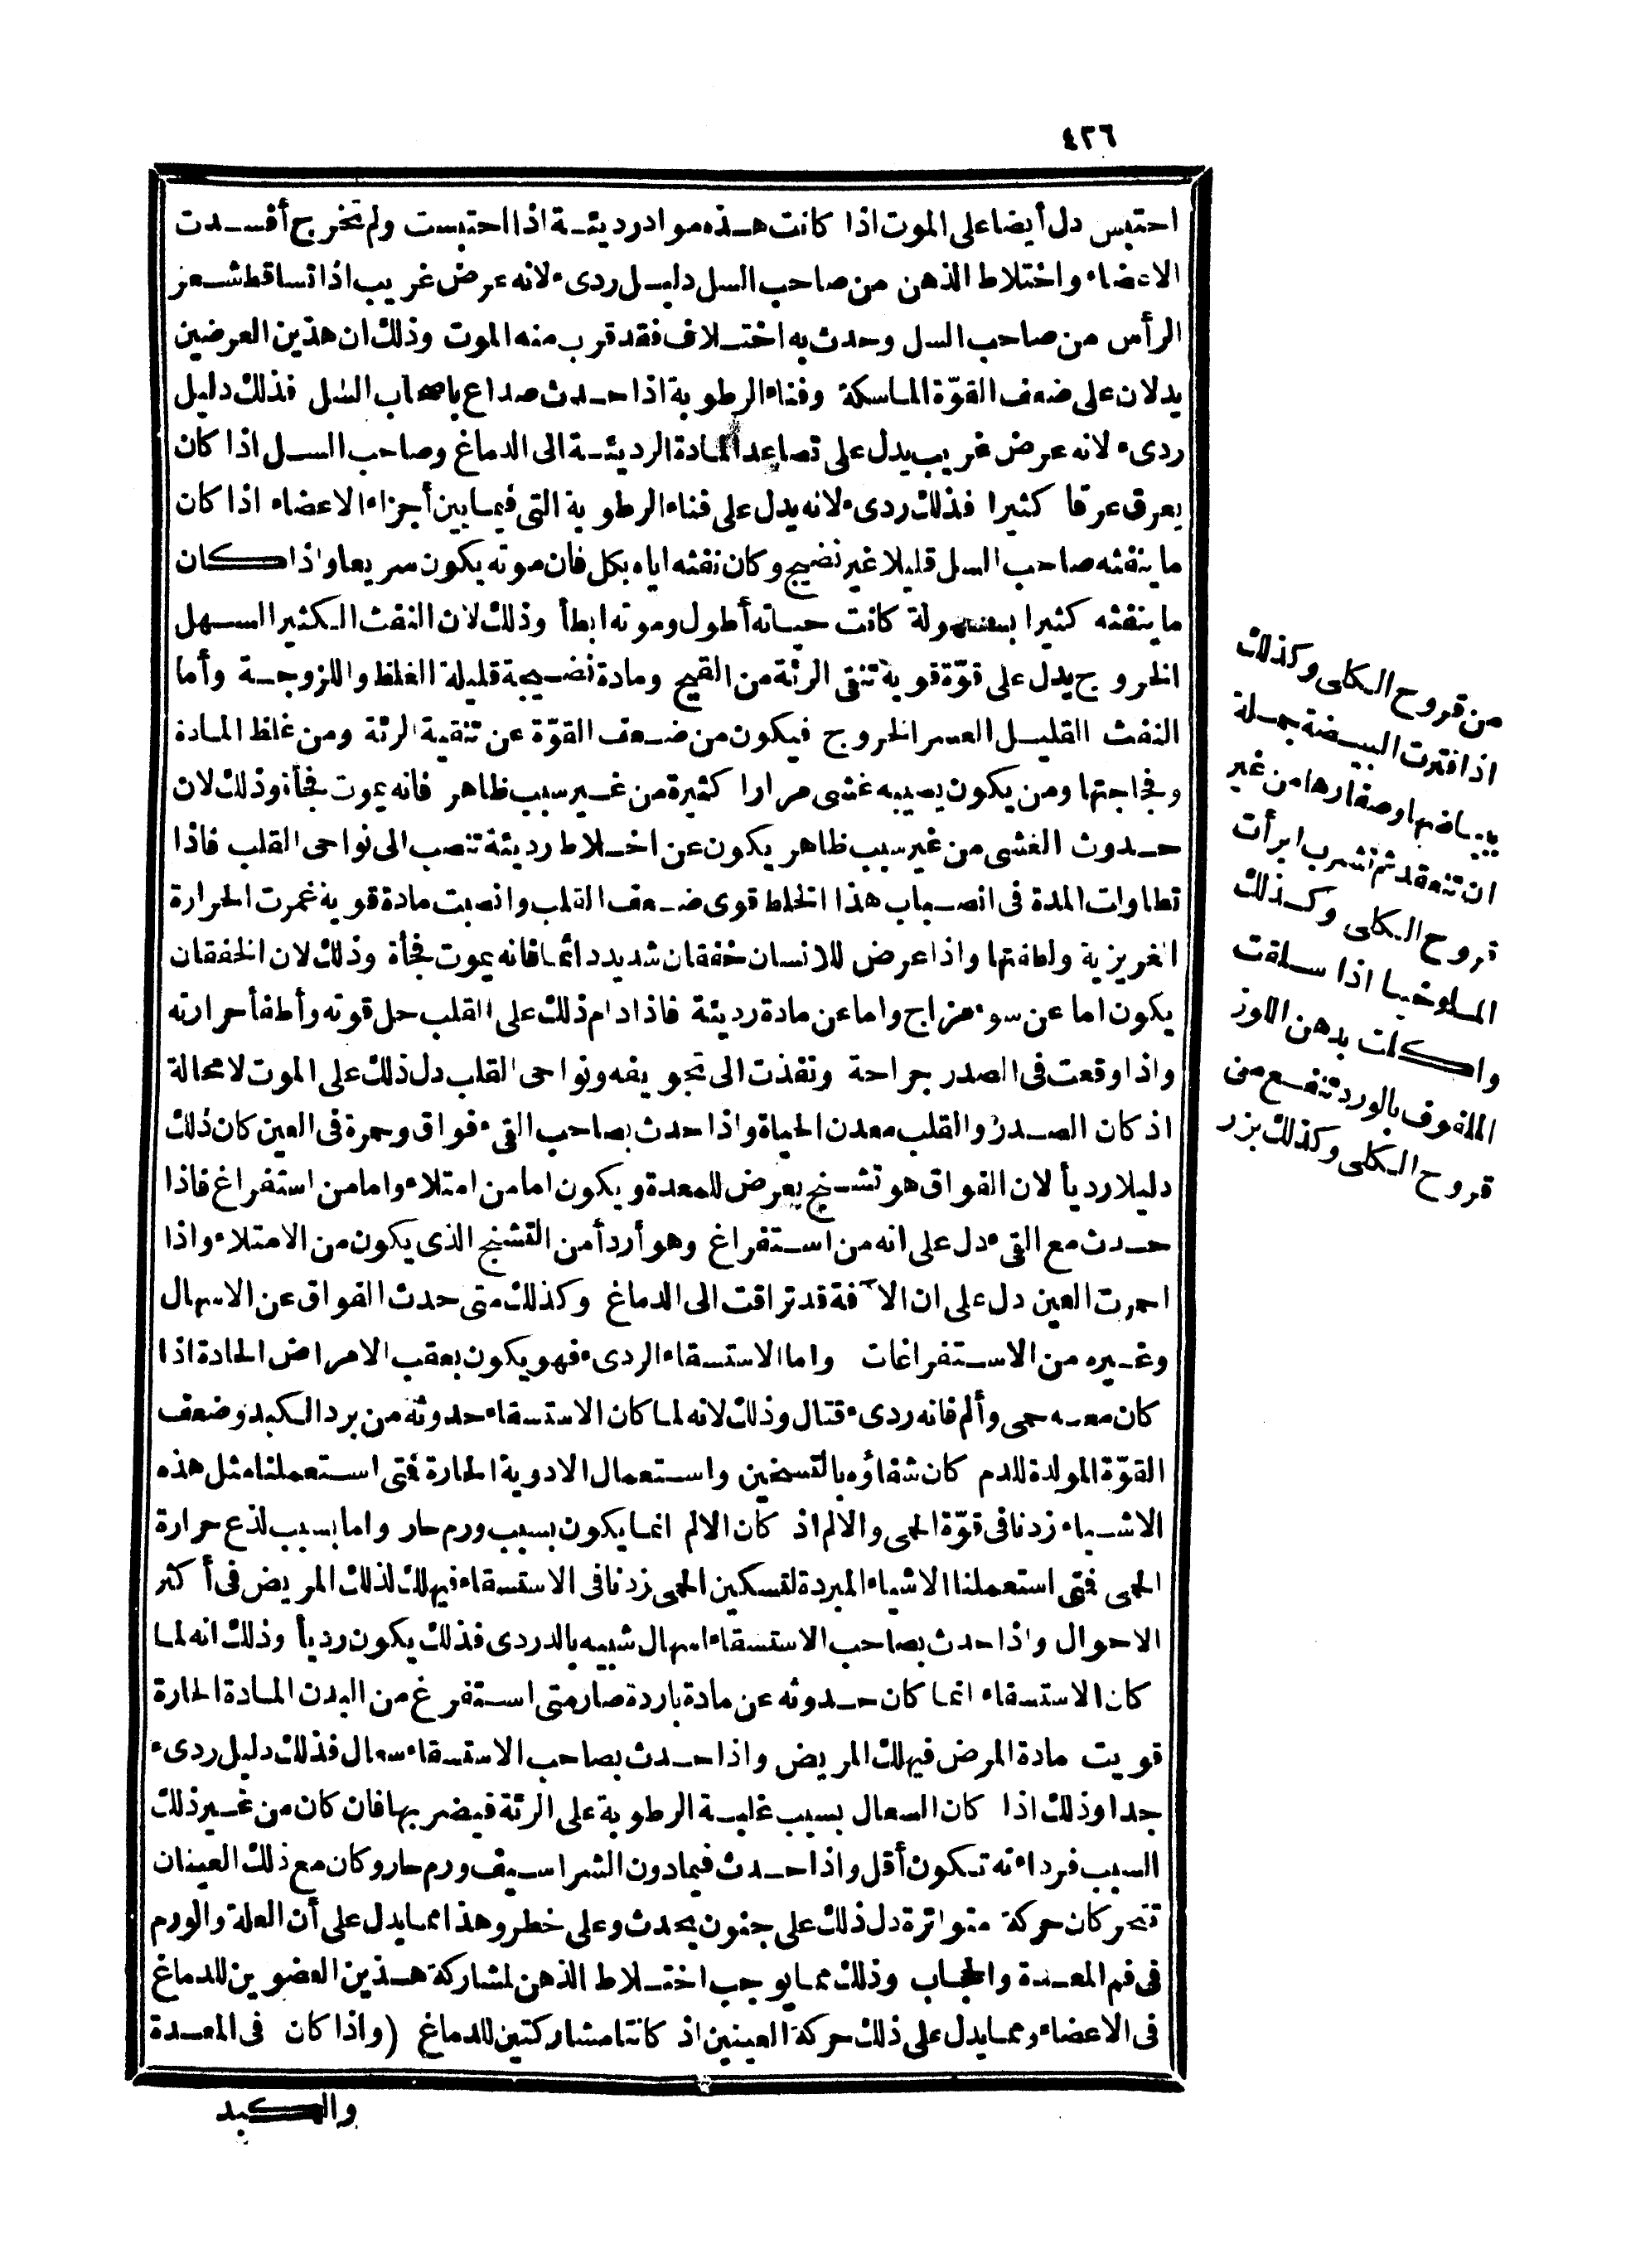 ٤٢٦
احتبس دل أيضا على الموت اذا كانت هذه مواد رديئة اذا احتبست ولم تخرج أفسدت
الاعضاء واختلاط الذهن من صاحب السل دليل ردىء لانه عرض غريب اذا تساقط شعر
الرأس من صاحب السل وحدث به اختلاف فقد قرب منه الموت وذلك ان هذين العرضين
يدلان على ضعف القوّة الماسكة وفناء الرطوبة اذا حدث صداع باصحاب السل فذلك دليل
ردىء لانه عرض غريب يدل على تصاعد المادة الرديئة الى الدماغ وصاحب السل اذا كان
يعرق عرقا كثيرا فذلك ردىء لانه يدل على فناء الرطوبة التى فيما بين أجزاء الاعضاء اذا كان
ما ينفثه صاحب السل قليلا غير نضيج وكان نفثه اياه بكل فان موته يكون سريعا واذا كان
ما ينفثه كثيرا بسهولة كانت حياته أطول وموته ابطأ وذلك لان النفث الكثير السهل
الخروج يدل على قوّة قوية تنقى الرئة من القيح ومادة نضيجة قليلة الغلظ واللزوجة وأما
النفث القليل العسر الخروج فيكون من ضعف القوّة عن تنقية الرئة ومن غلظ المادة
وفجاجتها ومن يكون يصيبه غشى مرارا كثيرة من غير سبب ظاهر فانه يموت فجأة وذلك لان
حدوث الغشى من غير سبب ظاهر يكون عن اخلاط رديئة تنصب الى نواحى القلب فاذا
تطاوات المدة فى انصباب هذا الخلط قوى ضعف القلب وانصبت مادة قوية غمرت الحرارة
الغريزية ولطفتها واذا عرض للانسان خفقان شديد دائما فانه يموت فجأة وذلك لان الخفقان
يكون اما عن سوء مزاج واما عن مادة رديئة فاذا دام ذلك على القلب حل قوته وأطفأ حرارته
واذا وقعت فى الصدر جراحة ونفذت الى تجويفه ونواحى القلب دل ذلك على الموت لا محالة
اذ كان الصدر والقلب معدن الحياة واذا حدث بصاحب القىء فواق وحمرة فى العين كان ذلك
دليلا رديأ لان الفواق هو تشنج يعرض للمعدة ويكون اما من امتلاء واما من استفراغ فاذا
حدث مع القىء دل على انه من استفراغ وهو أردأ من التشنج الذى يكون من الامتلاء واذا
احمرت العين دل على ان الآفة قد تراقت الى الدماغ وكذلك متى حدث الفواق عن الاسهال
وغيره من الاستفراغات واما الاستسقاء الردىء فهو يكون بعقب الامراض الحادة اذا
كان معه حمى وألم فانه ردىء قتال وذلك لانه لما كان الاستسقاء حدوثه من برد الكبد وضعف
القوّة المولدة للدم كان شفاؤه بالتسخين واستعمال الادوية الحارة فتى استعملنا مثل هذه
الاشياء زدنا فى قوّة الحمى والالم اذ كان الالم انما يكون بسبب ورم حار واما بسبب لذع حرارة
الحمى فتى استعملنا الاشياء المبردة لتسكين الحمى زدنا فى الاستسقاء فيهلك لذلك المريض فى أكثر
الاحوال واذا حدث بصاحب الاستسقاء اسهال شبيه بالدردى فذلك يكون رديأ وذلك انه لما
كان الاستسقاء انما كان حدوثه عن مادة باردة صار متى استفرغ من البدن المادة الحارة
قويت مادة المرض فيهلك المريض واذا حدث بصاحب الاستسقاء سعال فذلك دليل ردىء
جدا وذلك اذا كان السعال بسبب غلبة الرطوبة على الرئة فيضر بها فان كان من غير ذلك
السبب فرداءته تكون أقل واذا حدث فيما دون الشراسيف ورم حار وكان مع ذلك العينان
تتحركان حركة متواترة دل ذلك على جنون يحدث وعلى خطر وهذا مما يدل على أن العلة والورم
فى فم المعدة والحجاب وذلك مما يوجب اختلاط الذهن لمشاركة هذين العضوين للدماغ
فى الاعضاء ومما يدل على ذلك حركة العينين اذ كانتا مشاركتين للدماغ (واذا كان فى المعدة
والكبد
من قروح الكلى وكذلك
اذا فترت البيضة بجملة
بياضها وصفارها من غير
ان تنعقد ثم تشرب ابرأت
قروح الكلى وكذلك
الملوخيا اذا سلقت
واكلت بدهن اللوز
الملفوف بالورد تنفع من
قروح الكلى وكذلك بزر